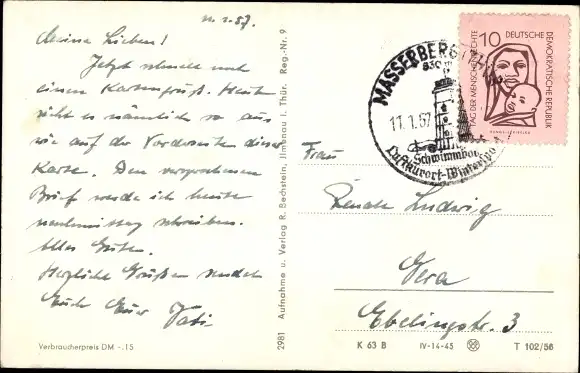 11.1.57.
Meine Lieben!
Jetzt schnell noch
einen Kartengruß. Heute
sieht es nämlich so aus
wie auf der Vorderseite dieser
Karte. Den versprochenen
Brief werde ich heute
nachmittag schreiben.
Alles Gute.
Herzliche Grüße sendet
Euch Euer Vati
Verbraucherpreis DM -.15
2981 Aufnahme u. Verlag R. Bechstein, Ilmenau i. Thür. Reg.-Nr. 9
MASSERBERG (THÜR)
830 m
11.1.57
Schwimmbad
Luftkurort-Winterspo
10 DEUTSCHE
DEMOKRATISCHE REPUBLIK
TAG DER MENSCHENRECHTE
Frau
Renate Ludwig
Gera
Ebelingstr. 3
K 63 B IV-14-45 T 102/56